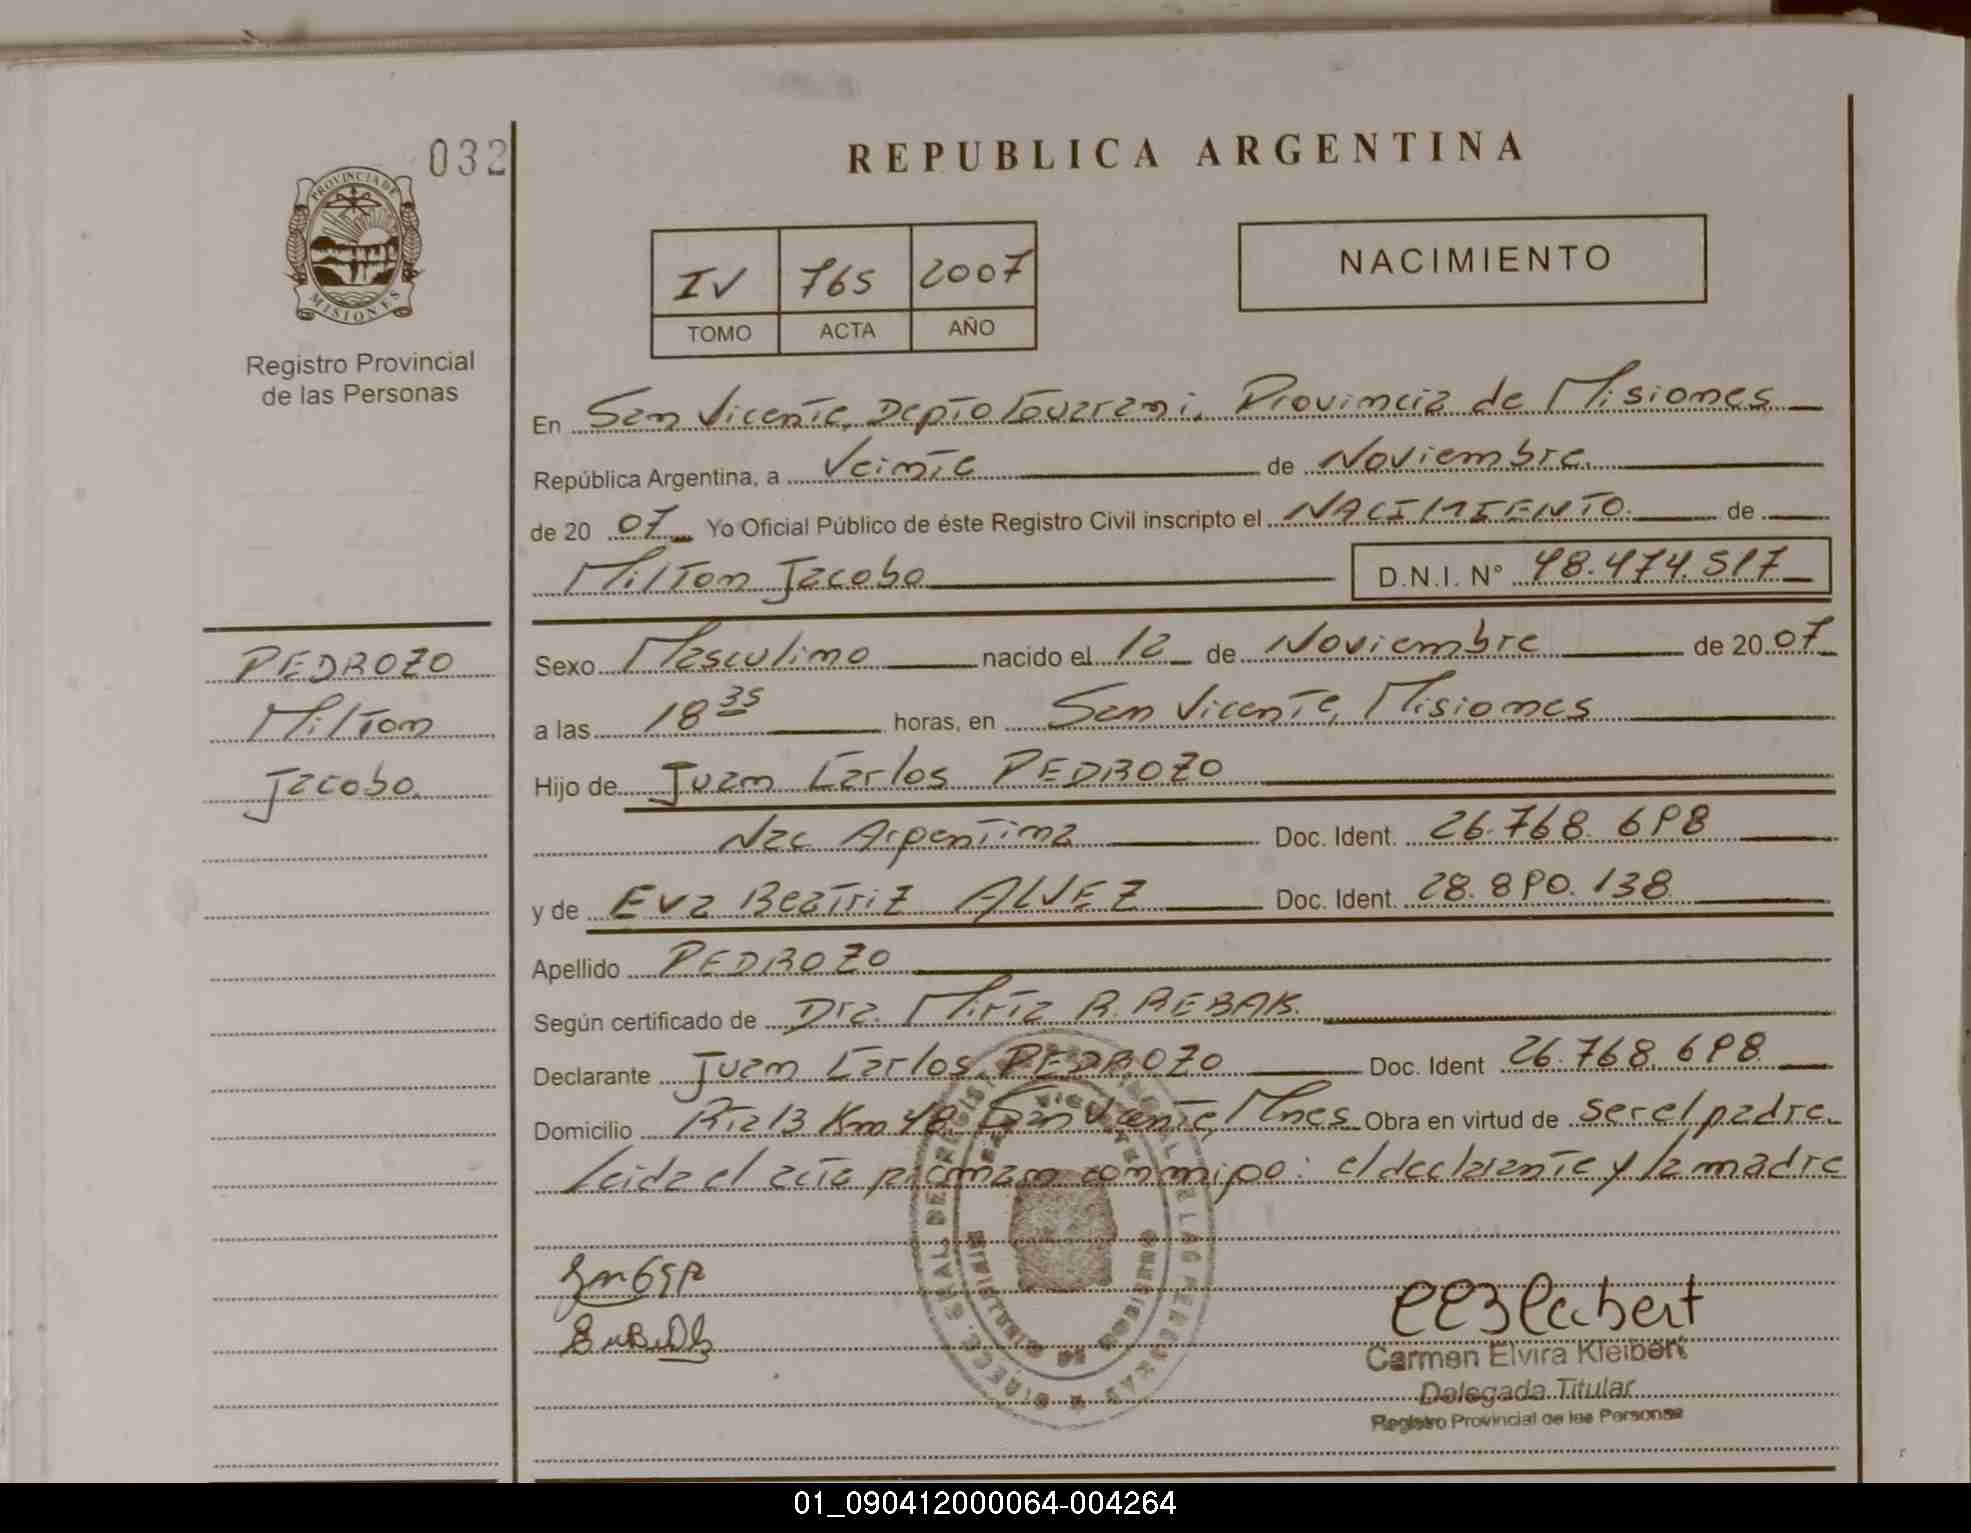 032
PROVINCIA DE
MISIONES
Registro Provincial
de las Personas
REPUBLICA ARGENTINA
IV 765 2007
TOMO ACTA AÑO
NACIMIENTO
En San Vicente, Depto Guarani, Provincia de Misiones
República Argentina, a Veinte de Noviembre
de 20 07 Yo Oficial Público de éste Registro Civil inscripto el NACIMIENTO de
Milton Jacobo D.N.I. N° 48.474.517
PEDROZO
Milton
Jacobo
Sexo Masculino nacido el 12 de Noviembre de 20 07
a las 18 35 horas, en San Vicente, Misiones
Hijo de Juan Carlos PEDROZO
Nac Argentina Doc. Ident. 26.768.698
y de Eva Beatriz ALVEZ Doc. Ident. 28.890.138
Apellido PEDROZO
Según certificado de Dra. Mirta R. REBAK
Declarante Juan Carlos PEDROZO Doc. Ident 26.768.698
Domicilio Rta 13 Km 48 San Vicente, Mnes Obra en virtud de ser el padre
Leida el acta firman conmigo: el declarante y la madre
Carmen Elvira Kleibert
Delegada Titular
Registro Provincial de las Personas
01_090412000064-004264